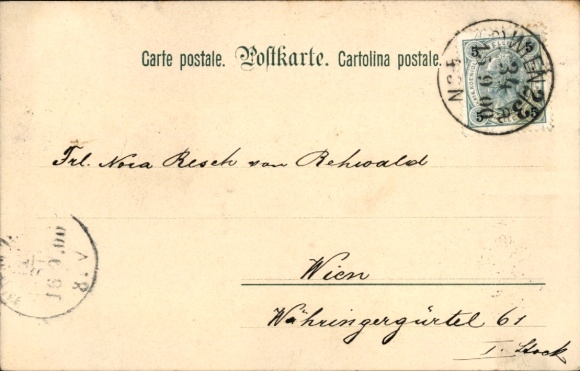 Carte postale. Postkarte. Cartolina postale.
WIEN
9 00
5
5
Frl. Nora Resch von Rehwald
Wien
Währingergürtel 61
I. Stock